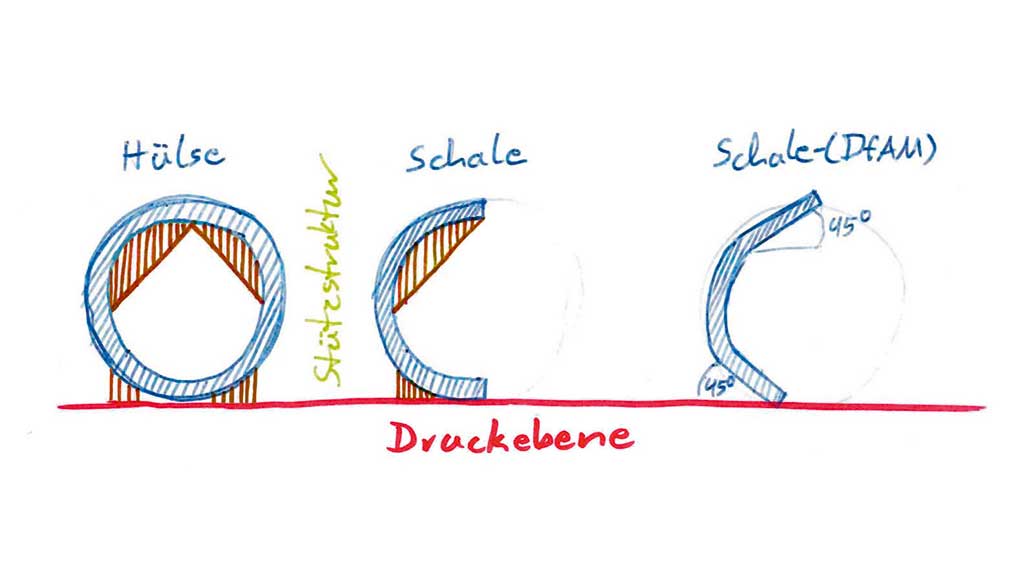 Hülse
Stützstruktur
Schale
Schale-(DfAM)
45°
45°
Druckebene